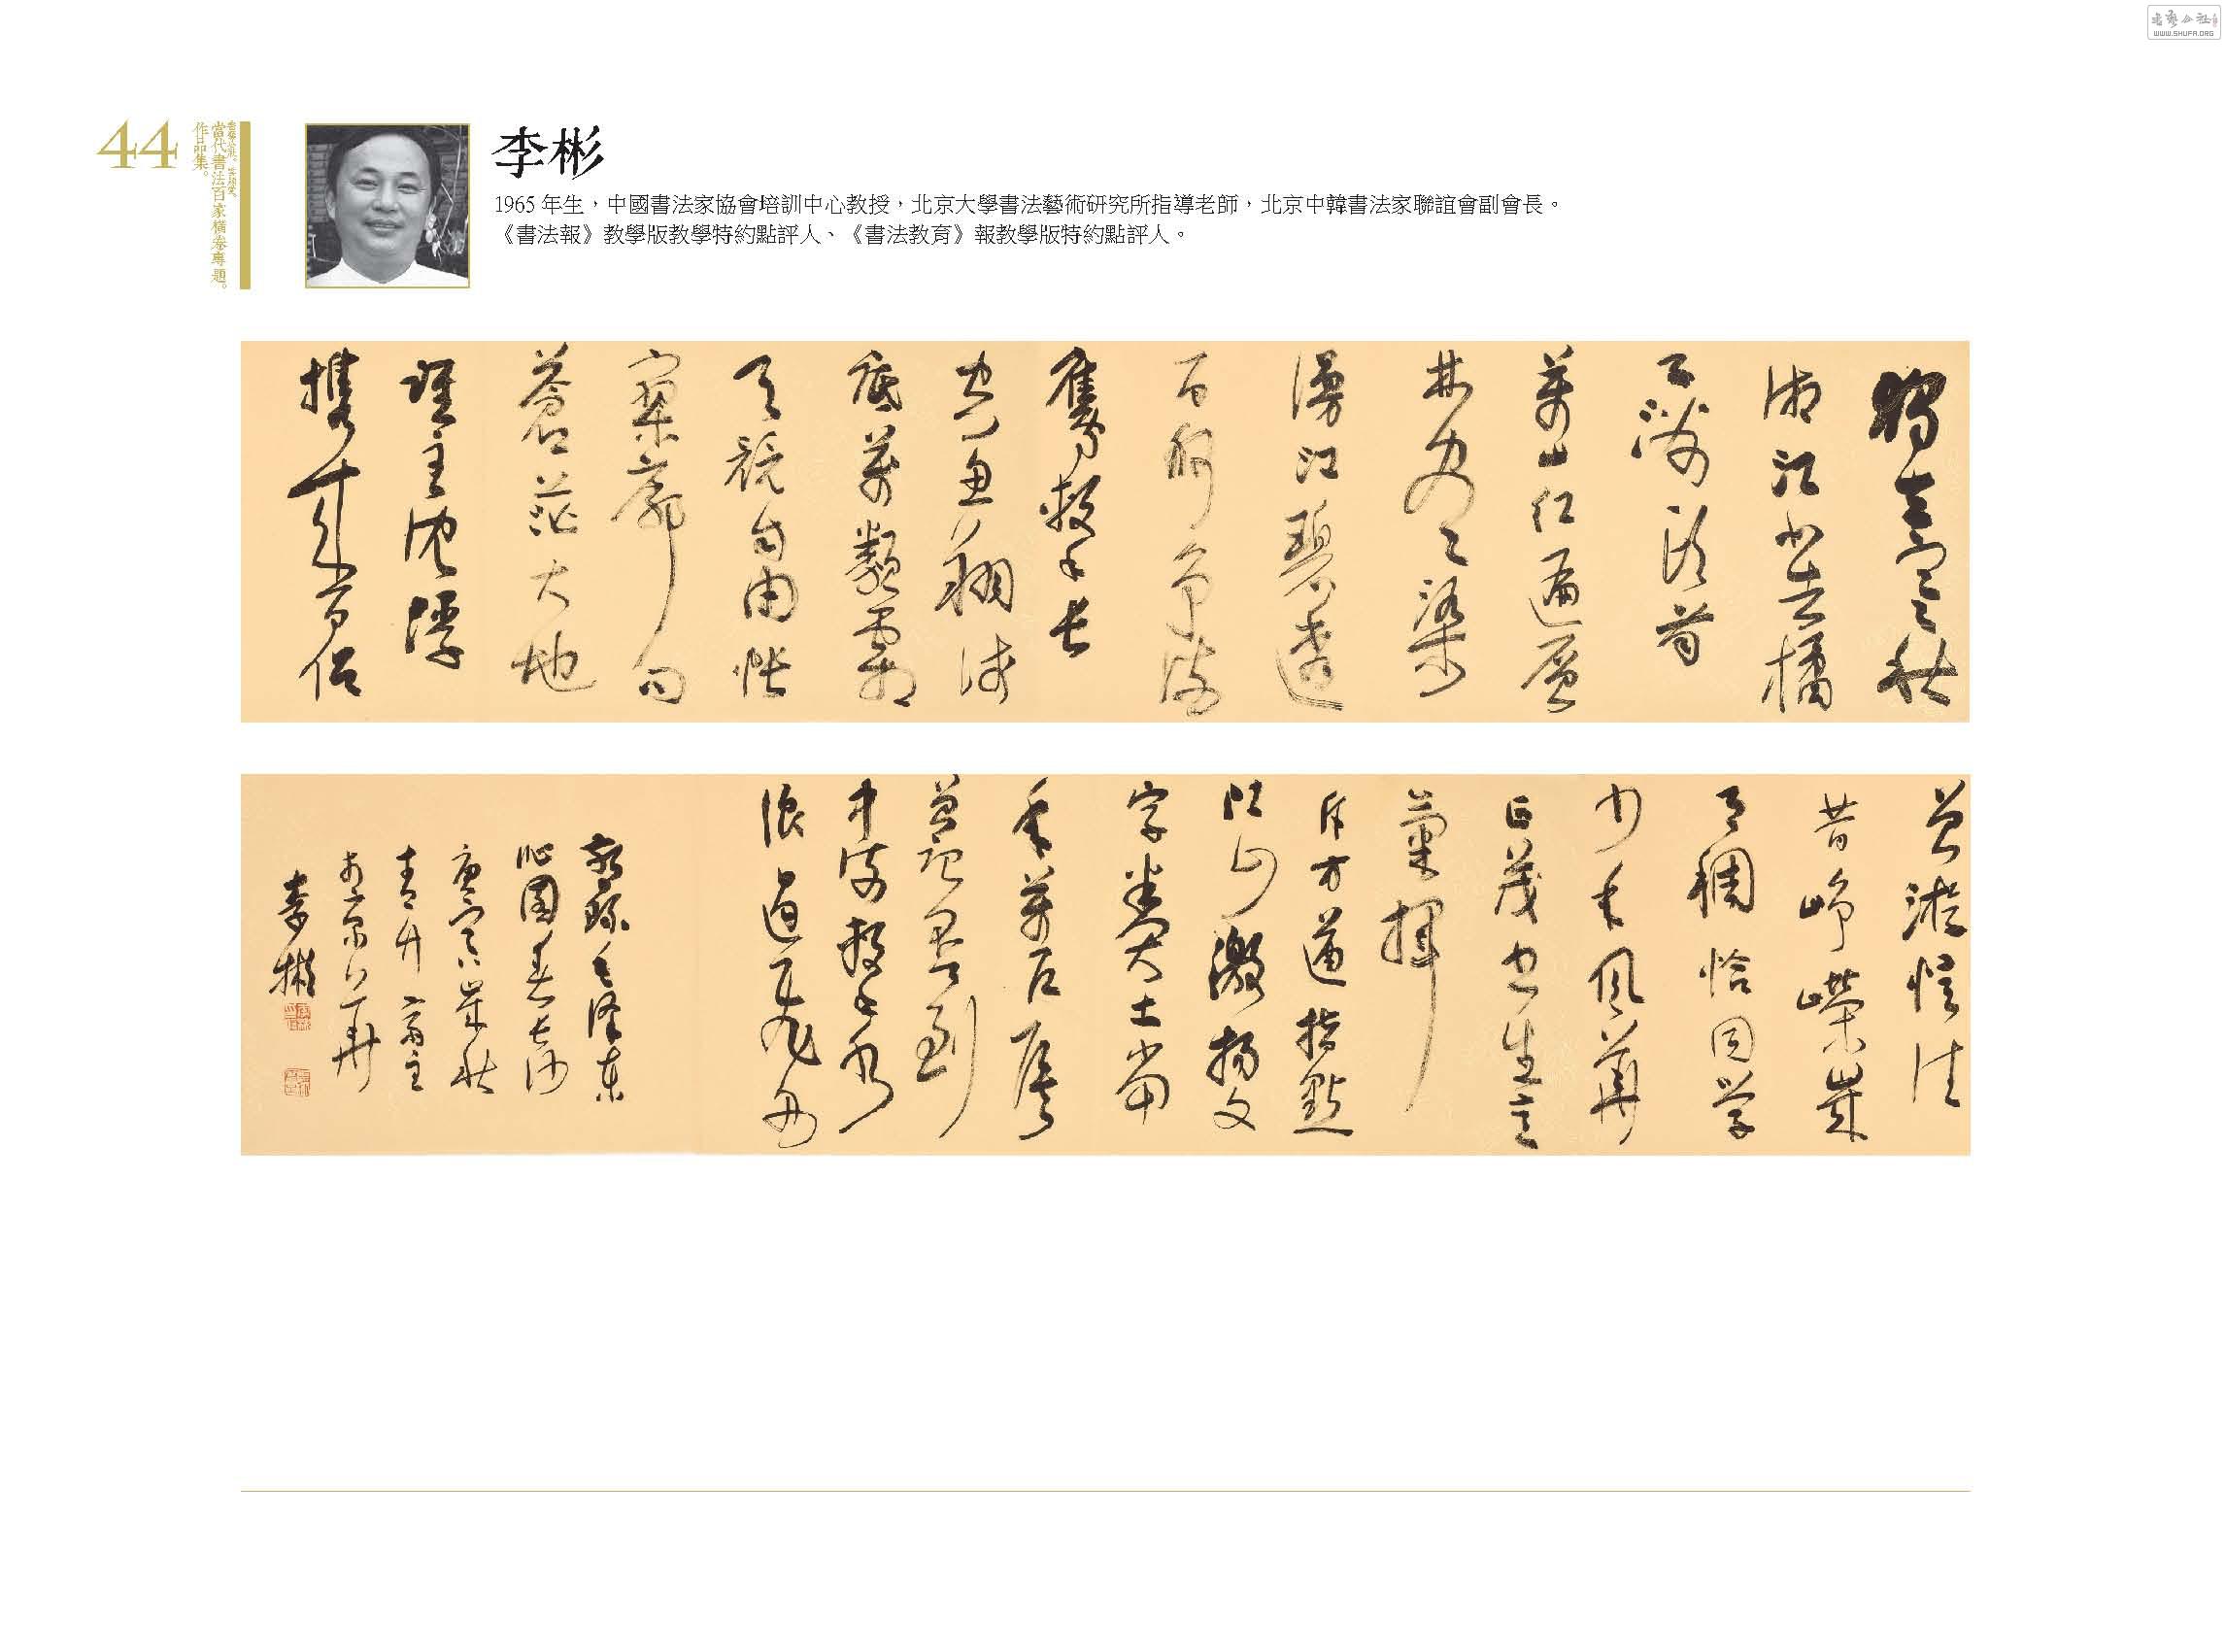 44
當代書法百家橫卷專題。
作品集。
李彬
1965 年生，中國書法家協會培訓中心教授，北京大學書法藝術研究所指導老師，北京中韓書法家聯誼會副會長。
《書法報》教學版教學特約點評人、《書法教育》報教學版特約點評人。
獨立寒秋
湘江北去橘
子洲頭看
萬山紅遍層
林盡染
漫江碧透
百舸爭流
鷹擊長
空魚翔淺
底萬類霜
天競自由悵
寥廓問
蒼茫大地
誰主沈浮
攜來百侶
曾遊憶往
昔崢嶸歲
月稠恰同学
少年風華
正茂書生意
氣揮
斥方遒指點
江山激揚文
字糞土當
年萬戶侯
曾記否到
中流擊水
浪遏飛舟
敬錄毛澤東
沁園春長沙
庚寅歲秋
青竹齋主
於京華
李彬
書藝公社
WWW.SHUFA.ORG